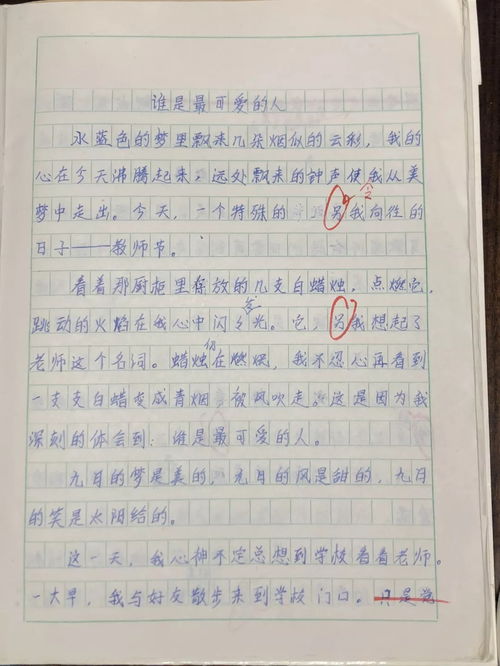 谁是最可爱的人
水蓝色的梦里飘来几朵烟似的云彩，我的
心在今天沸腾起来，远处飘来的钟声使我从美
梦中走出。今天，一个特殊的 另令我向往的
日子——教师节。
看着那厨柜里存放的几支白蜡烛，点燃它，
跳动的火焰在我心中闪闪发光。它，另我想起了
老师这个名词。蜡烛仍在燃烧，我不忍心再看到
一支支白蜡变成青烟 被风吹走。这是因为我
深刻的体会到：谁是最可爱的人。
九月的梦是美的，九月的风是甜的，九月
的笑是太阳给的。
这一天，我心神不定总想到学校看看老师。
一大早，我与好友散步来到学校门口。只是觉